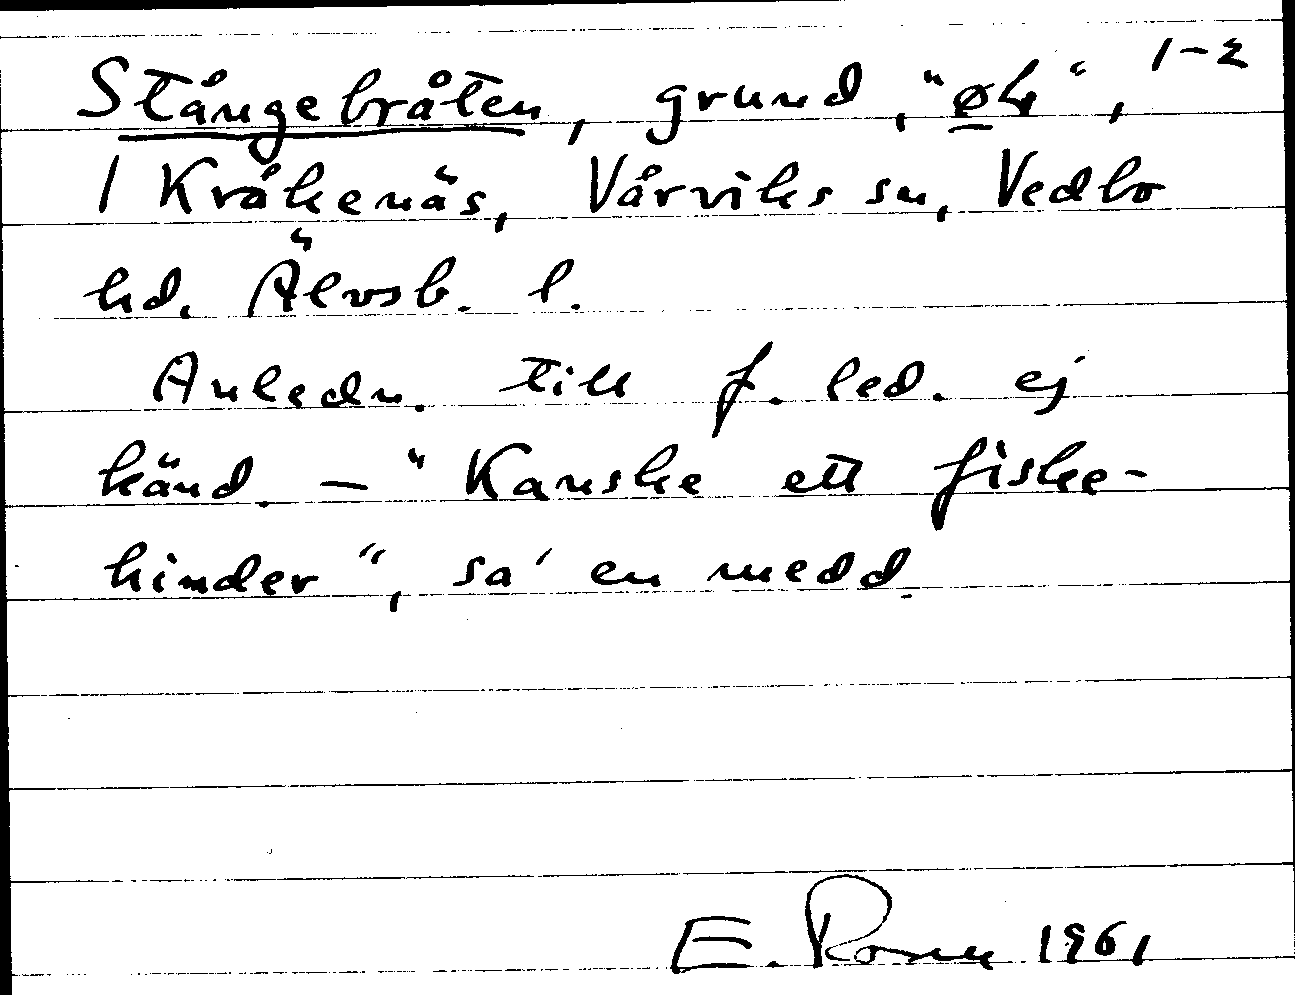 Stångebråten, grund, "øk", 1-2
1 Kråkenäs, Vårviks sn, Vedbo
hd. Älvsb. l.
Anledn. till f. led. ej
känd. - "Kanske ett fiske-
hinder", sa' en medd.
E. Rosen 1961